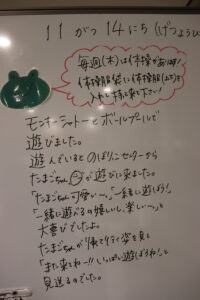 11がつ14にち(げつようび
毎週(木)は体操があります!
体操服袋に体操服(上下)を
入れ持ち来て下さい!
モンキーシャトーとボールプールで
遊びました。
遊んでいるとのぼりんセンターから
たまごちゃんが遊びに来ました。
「たまごちゃん可愛い〜。」「一緒に遊ぼう!」
「一緒に遊べるの嬉しいし、楽しい〜。」と
大喜びでしたよ。
たまごちゃんが帰って行く姿を見て
「また来てねー!!いっぱい遊ぼうね!」と
見送るのでした。